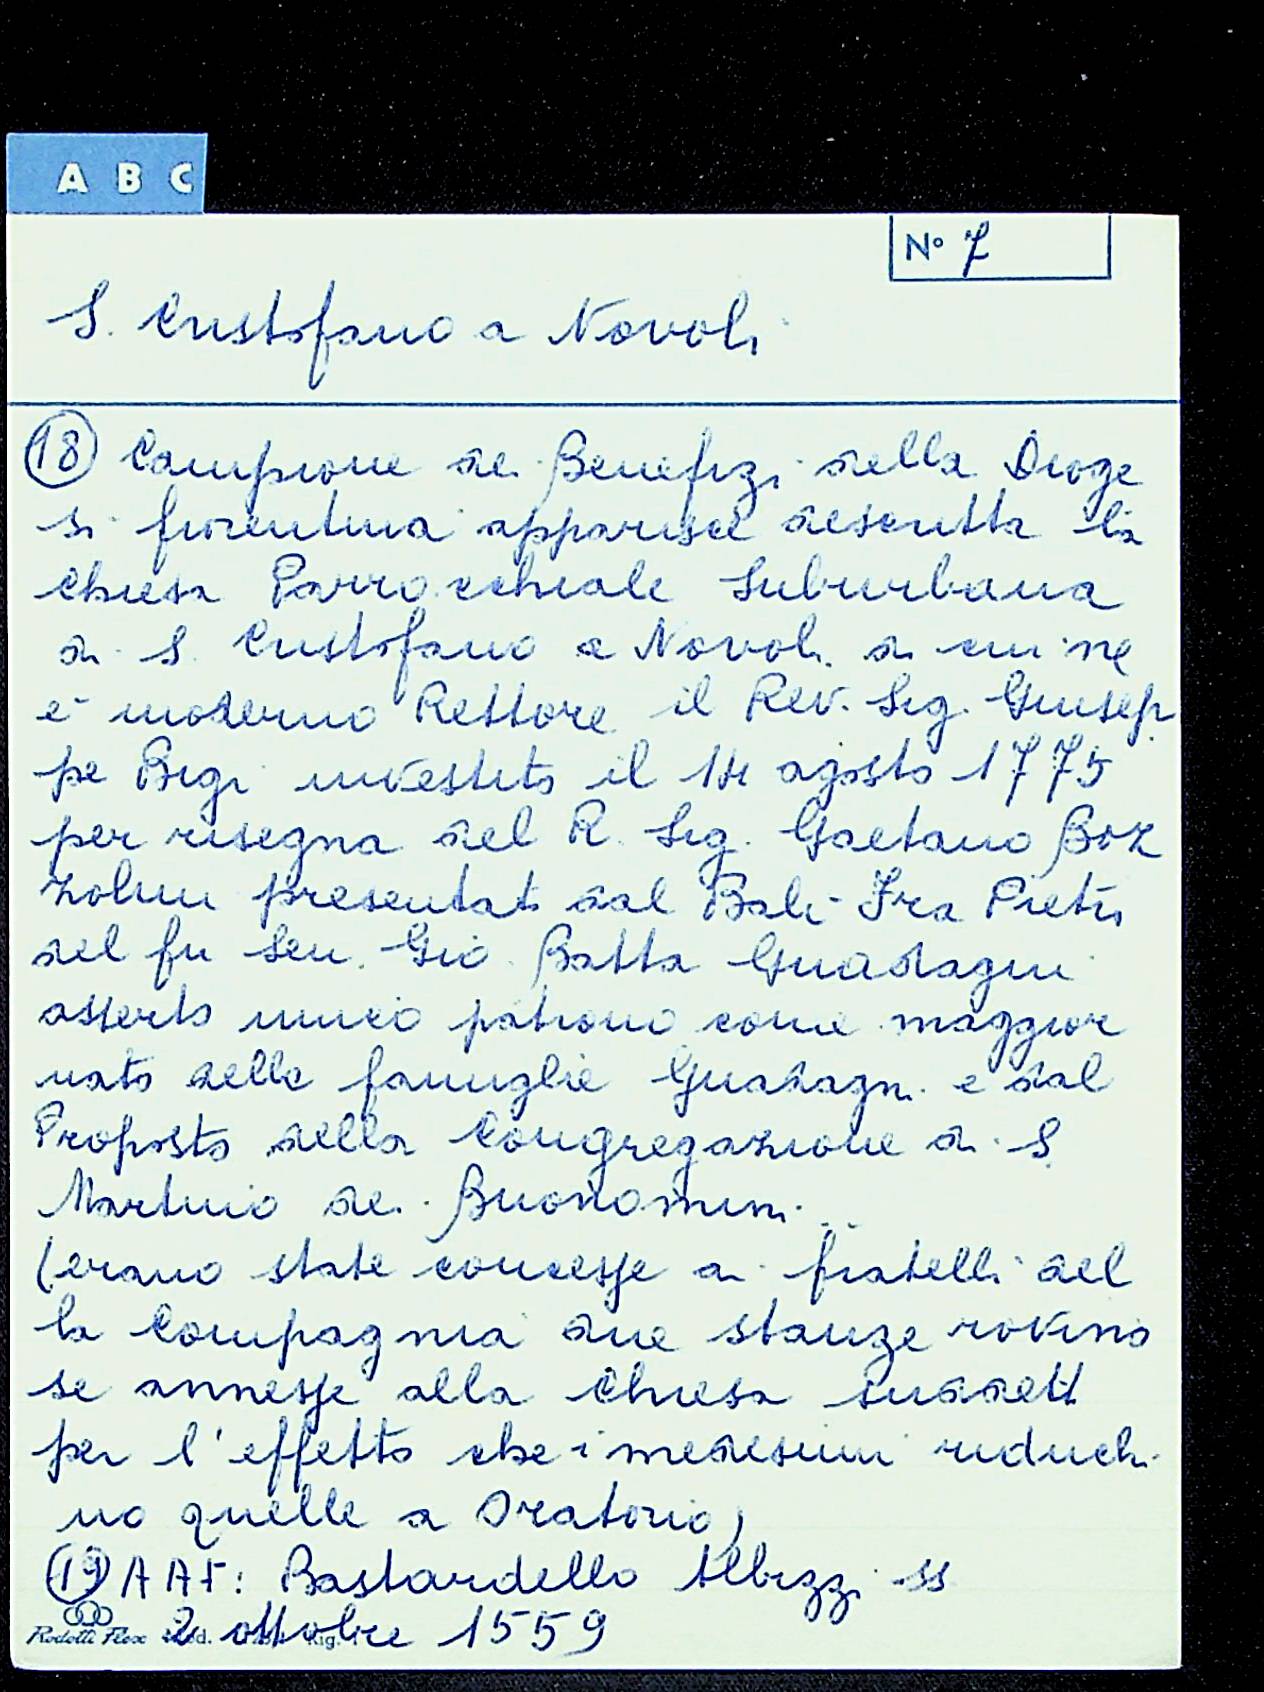 A B C
N° 7
S. Cristofano a Novoli
18 Campione de Benefizi della Dioge
si fiorentina apparisce descritta la
Chiesa Parrocchiale Suburbana
di S. Cristofano a Novoli di cui ne
è moderno Rettore il Rev. Sig. Giusep
pe Bigi investito il 14 agosto 1775
per risegna del R. Sig. Gaetano Boz
zolini presentat. dal Balì Fra Pietro
del fu Sen. Gio. Batta Guadagni
asserto unico patrono come maggior
nato delle famiglie Guadagni e dal
Proposto della Congregazione di S.
Martino dei Buonomini.
(erano state concesse ai fratelli del
la Compagnia due stanze rovino
se annesse alla Chiesa suddett
per l'effetto che i medesimi riduch.
no quelle a Oratorio)
19 AAF: Bastardello Albizzi ss
2 ottobre 1559
Rodotti Flex